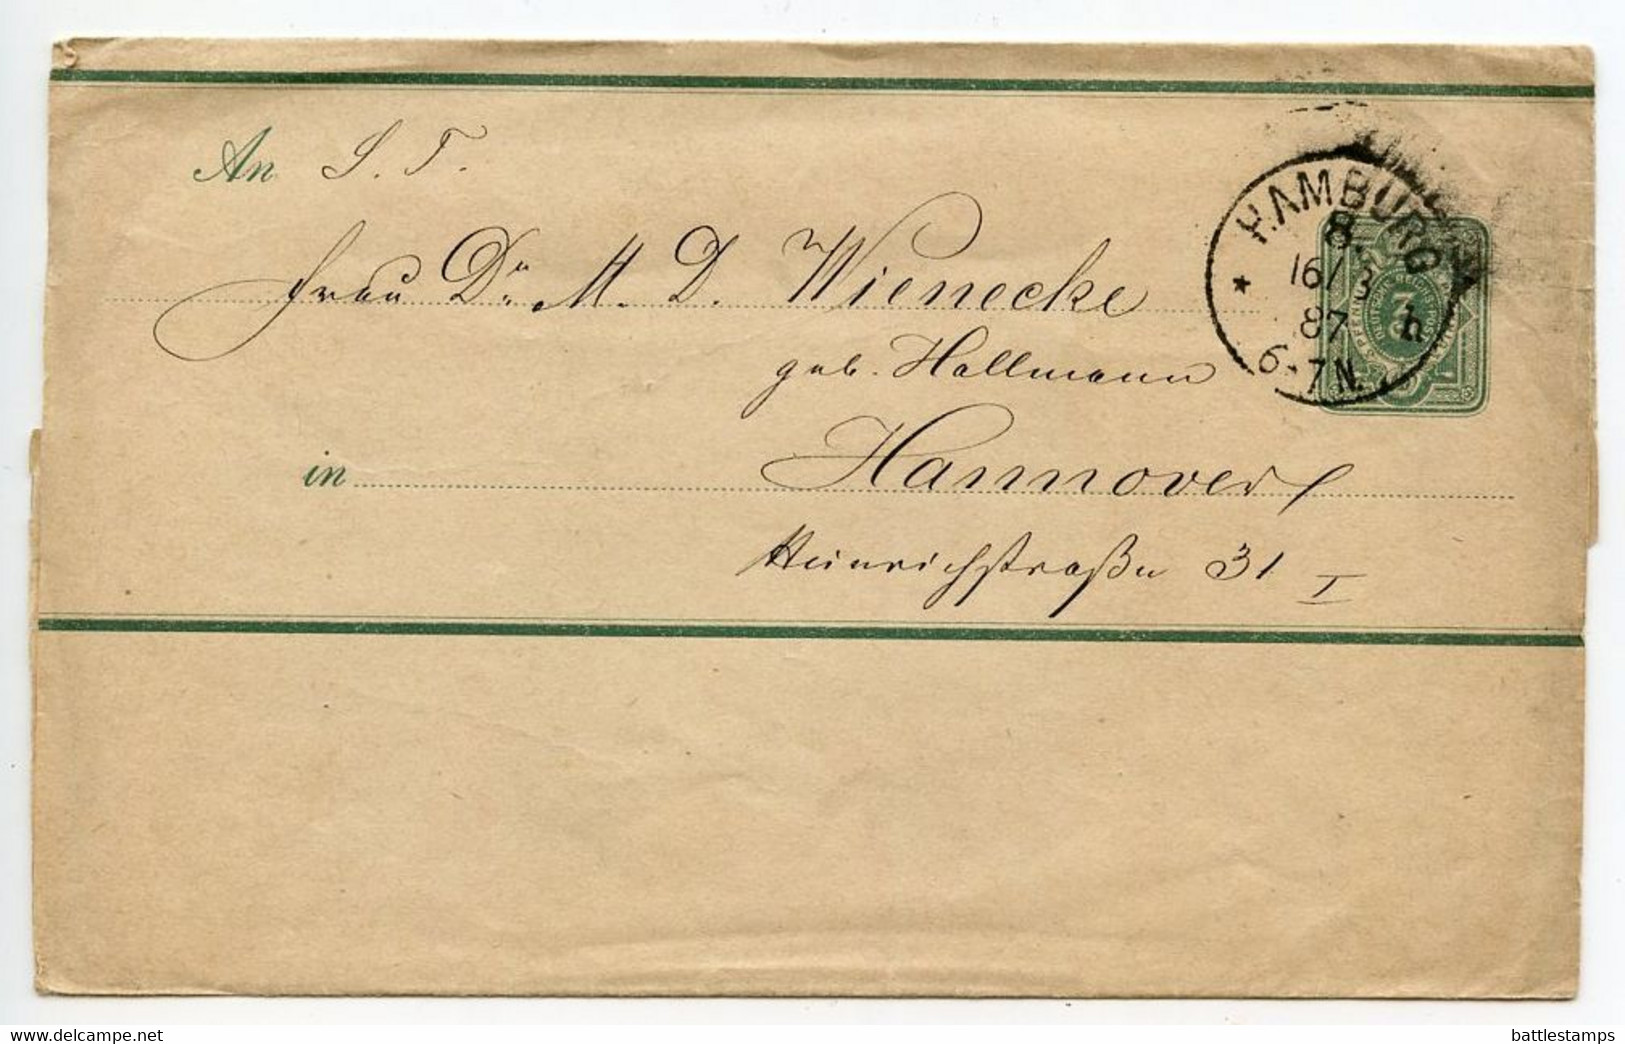 An S. T.
HAMBURG
8.
16/3
87 h
6-7N.
3
Frau Dr. M. D. Wienecke
geb. Hallmann
in Hannover
Heinrichstraße 31 I
battlestamps
delcampe.net